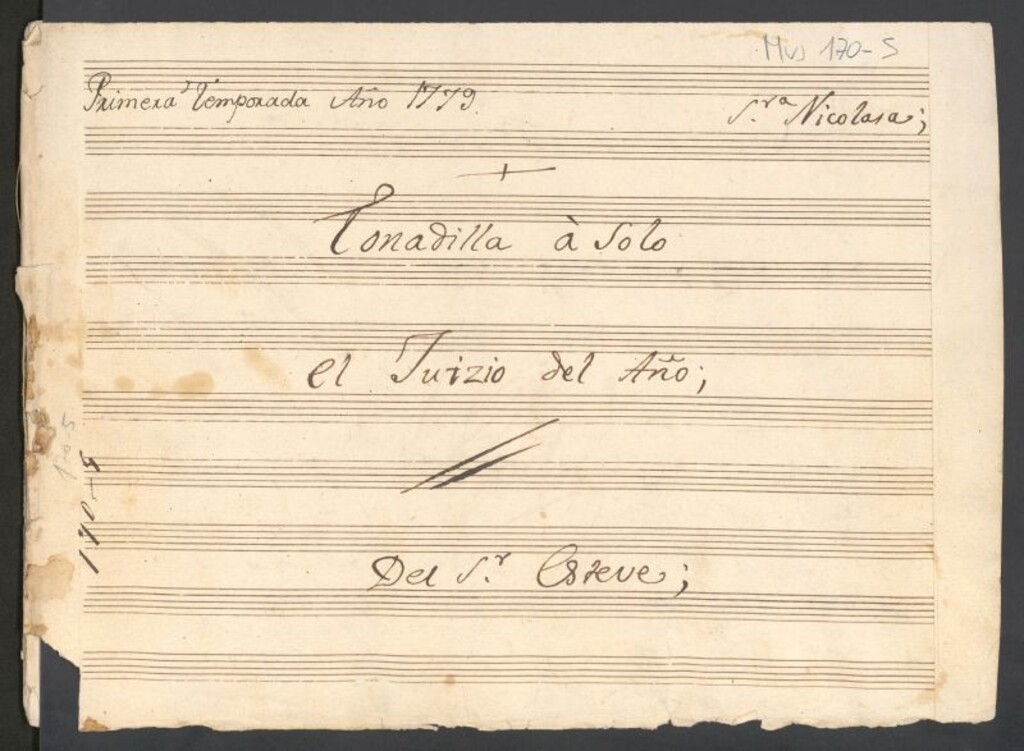 Mus 170-5
Primera Temporada Año 1779.
S.ra Nicolasa;
Tonadilla à Solo
el Juizio del Año;
Del S.r Esteve;
170-5
170-5